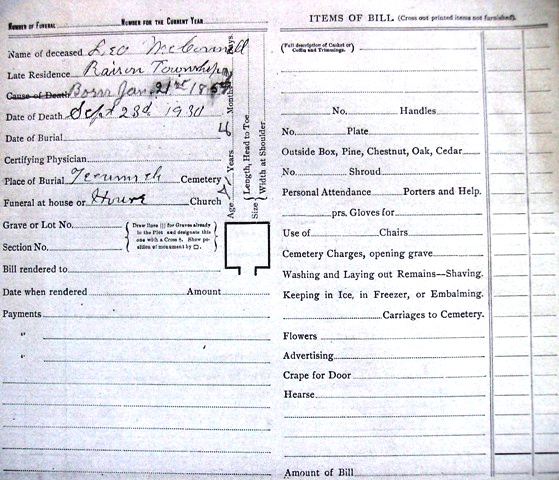 NUMBER OF FUNERAL NUMBER FOR THE CURRENT YEAR
Name of deceased Leo McConnell
Late Residence Raisin Township
Cause of Death Born Jan. 21st
Date of Death Sept 23d 1930
Date of Burial
Certifying Physician
Place of Burial Tecumseh Cemetery
Funeral at house or House Church
Grave or Lot No.
Section No.
{ Draw lines ||| for Graves already in the Plot and designate this one with a Cross †. Show position of monument by □. }
Bill rendered to
Date when rendered Amount
Payments
"
"
Age Years Months Days
Size { Length, Head to Toe
Width at Shoulder
ITEMS OF BILL (Cross out printed items not furnished).
(Full description of Casket or Coffin and Trimmings.)
No. Handles
No. Plate
Outside Box, Pine, Chestnut, Oak, Cedar
No. Shroud
Personal Attendance Porters and Help.
prs. Gloves for
Use of Chairs
Cemetery Charges, opening grave
Washing and Laying out Remains—Shaving.
Keeping in Ice, in Freezer, or Embalming.
Carriages to Cemetery.
Flowers
Advertising
Crape for Door
Hearse
Amount of Bill